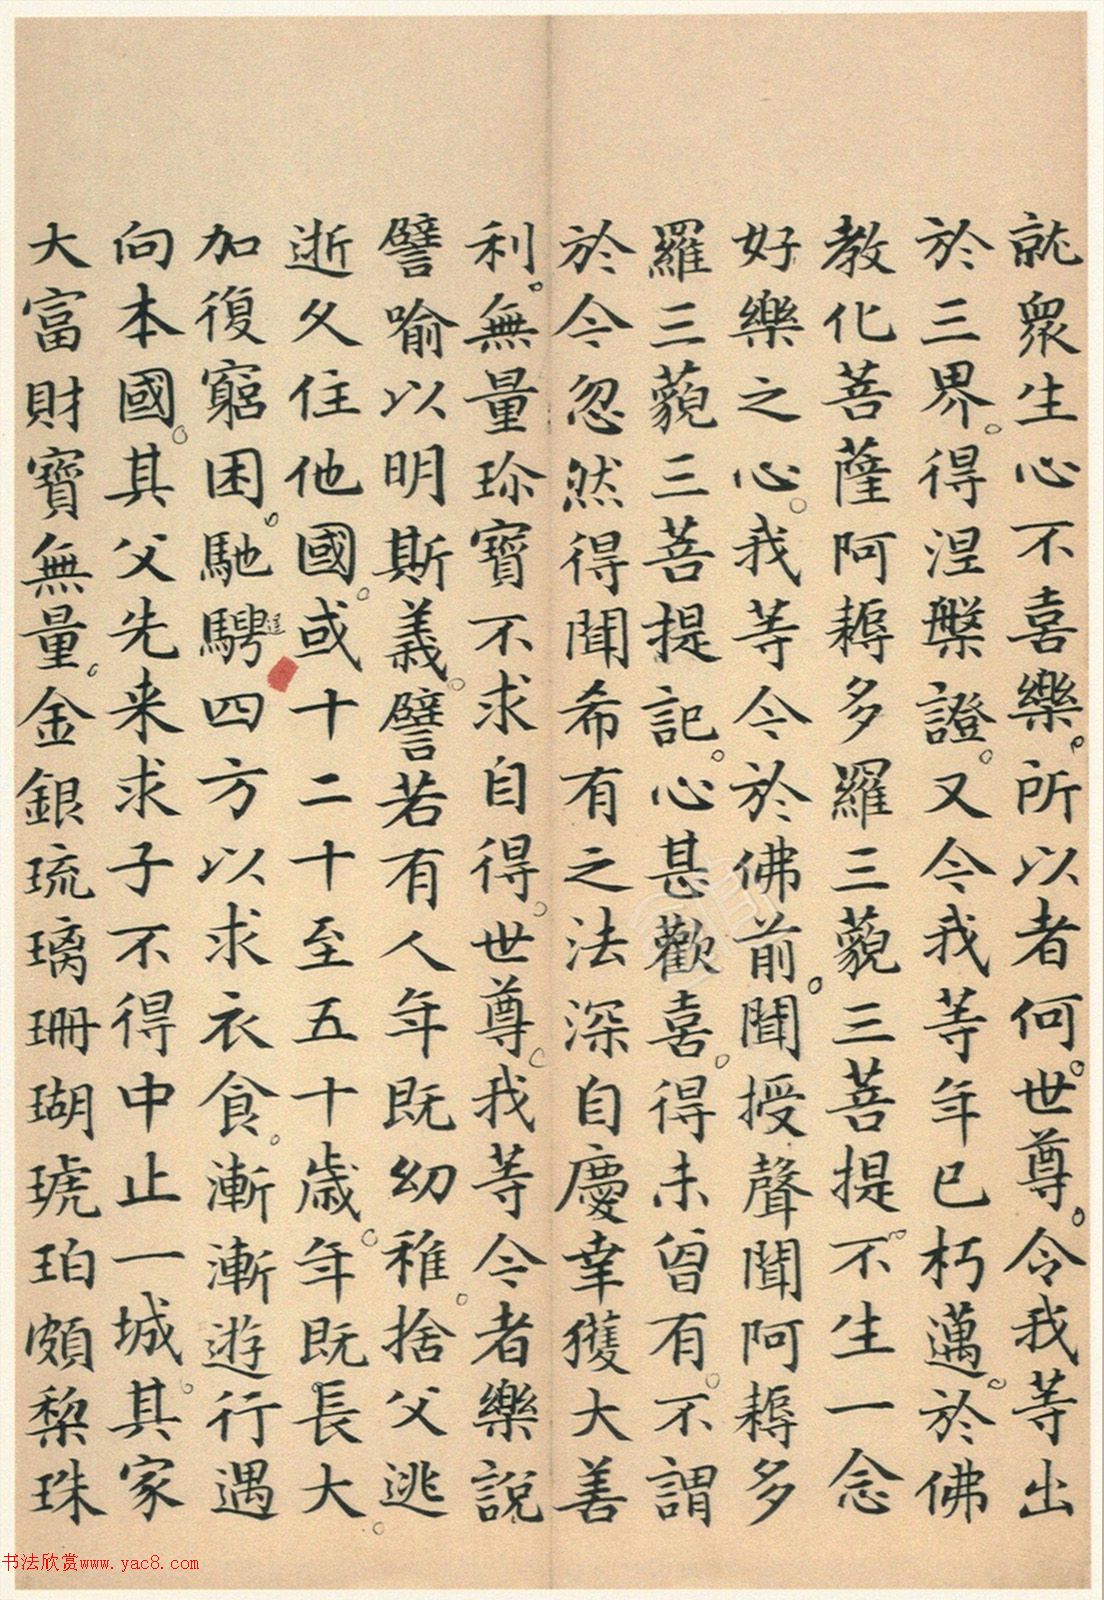 就眾生心不喜樂。所以者何。世尊。令我等出
於三界。得涅槃證。又今我等年已朽邁。於佛
教化菩薩阿耨多羅三藐三菩提。不生一念
好樂之心。我等今於佛前。聞授聲聞阿耨多
羅三藐三菩提記。心甚歡喜。得未曾有。不謂
於今忽然得聞希有之法深自慶幸獲大善
利。無量珍寶不求自得。世尊。我等今者樂說
譬喻以明斯義。譬若有人年既幼稚。捨父逃
逝久住他國。或十二十至五十歲。年既長大。
加復窮困。馳騁四方以求衣食。漸漸遊行遇
向本國。其父先来求子不得中止一城。其家
大富財寶無量。金銀琉璃珊瑚琥珀頗棃珠
书法欣赏www.yac8.com